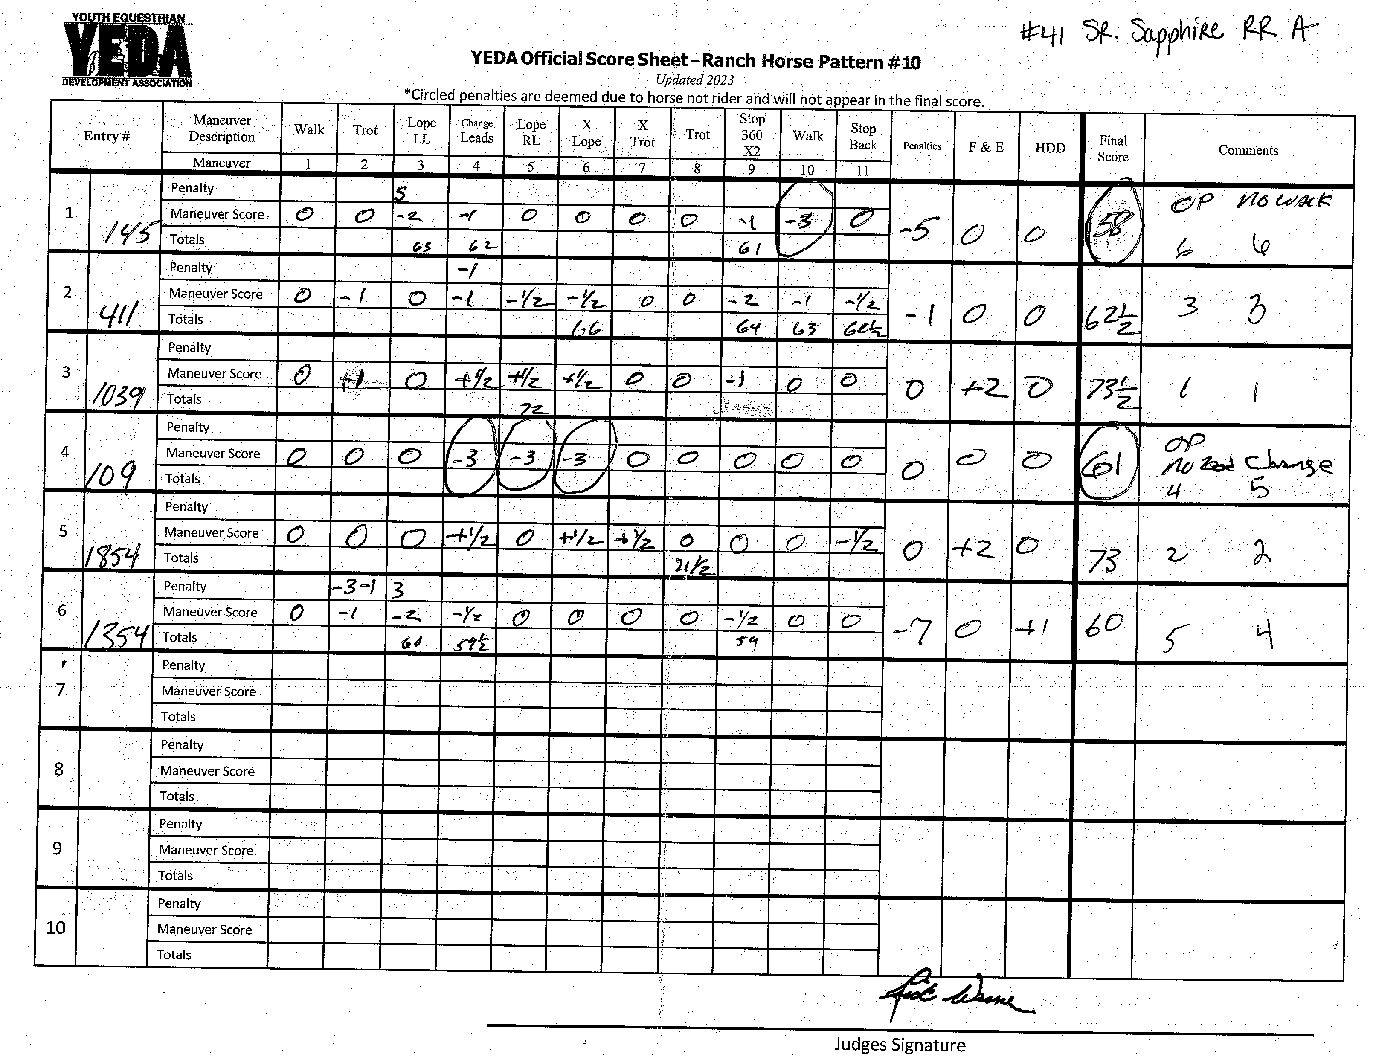 YOUTH EQUESTRIAN
YEDA
DEVELOPMENT ASSOCIATION
#41 SR. Sapphire RR A
YEDA Official Score Sheet – Ranch Horse Pattern #10
Updated 2023
*Circled penalties are deemed due to horse not rider and will not appear in the final score.
Entry # Maneuver Description Walk Trot Lope LL Change Leads Lope RL X Lope X Trot Trot Stop 360 X2 Walk Stop Back Penalties F & E HDD Final Score Comments
Maneuver 1 2 3 4 5 6 7 8 9 10 11
1 145 Penalty 5
Maneuver Score 0 0 -2 -1 0 0 0 0 -1 -3 0 -5 0 0 58 OP no walk
Totals 63 62 61 6 6
2 411 Penalty -1
Maneuver Score 0 -1 0 -1 -1/2 -1/2 0 0 -2 -1 -1/2 -1 0 0 62 1/2 3 3
Totals 66 64 63 62 1/2
3 1039 Penalty
Maneuver Score 0 +1 0 +1/2 +1/2 +1/2 0 0 -1 0 0 0 +2 0 73 1/2 1 1
Totals 72
4 109 Penalty
Maneuver Score 0 0 0 -3 -3 -3 0 0 0 0 0 0 0 0 61 OP
no Change
Totals 4 5
5 1854 Penalty
Maneuver Score 0 0 0 +1/2 0 +1/2 +1/2 0 0 0 -1/2 0 +2 0 73 2 2
Totals 21 1/2
6 1354 Penalty -3-1 3
Maneuver Score 0 -1 -2 -1/2 0 0 0 0 -1/2 0 0 -7 0 +1 60 5 4
Totals 60 59 1/2 59
7 Penalty
Maneuver Score
Totals
8 Penalty
Maneuver Score
Totals
9 Penalty
Maneuver Score
Totals
10 Penalty
Maneuver Score
Totals
Judges Signature